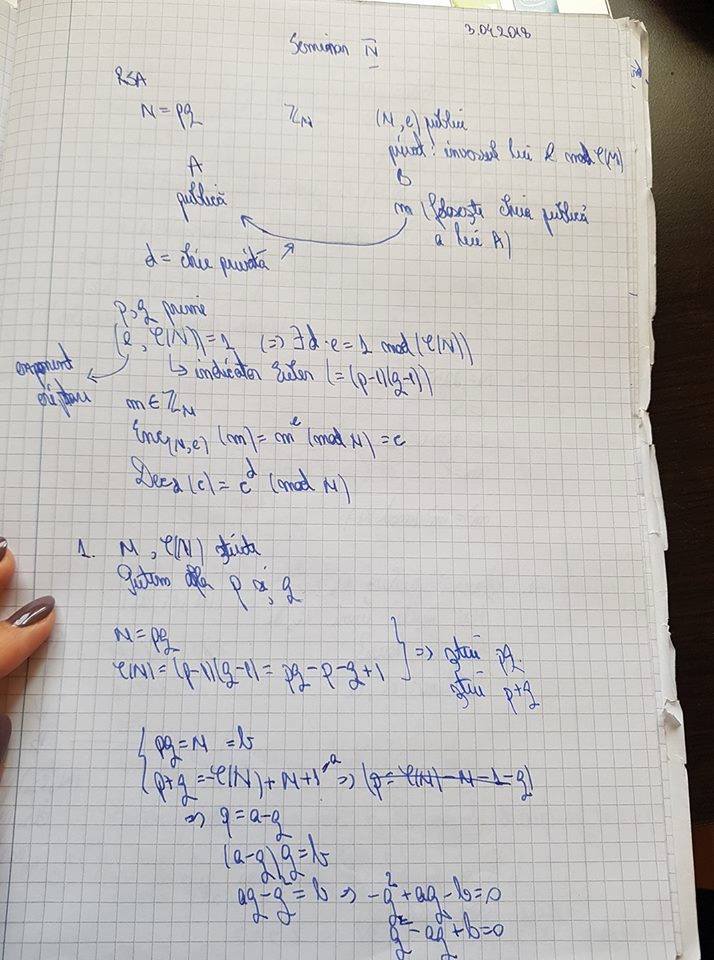 3.04.2018
Seminar IV
RSA
N = pq ℤ_N (N, e) public
privat: inversul lui e mod φ(N)
A B
publică m (folosește cheia publică
a lui A)
d = cheie privată
p, q prime
(e, φ(N)) = 1 (=> ∃ d·e = 1 mod (φ(N))
exponent ↳ indicator Euler (= (p-1)(q-1))
criptare
m ∈ ℤ_N
Enc_(N,e) (m) = m^e (mod N) = c
Dec_d (c) = c^d (mod N)
1. N, φ(N) știute
Putem afla p și q
N = pq
φ(N) = (p-1)(q-1) = pq - p - q + 1 } => știu pq.
știu p+q
{ pq = N = b
p+q = -φ(N) + N + 1 = a => (p = φ(N) - N - 1 - q)
=> p = a - q
(a-q) q = b
aq - q² = b => -q² + aq - b = 0
q² - aq + b = 0